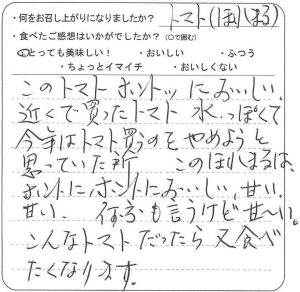 ・何をお召し上がりになりましたか? トマト(ほりはる)
・食べたご感想はいかがでしたか?(○で囲む)
・とっても美味しい! ・おいしい ・ふつう
・ちょっとイマイチ ・おいしくない
このトマト ホントッにおいしい
近くで買ったトマト 水っぽくて
今年はトマト買うのをやめようと
思っていた所 このほりはるは、
ホントに、ホントにおいしい、甘い
甘い、 何ふも言うけど甘〜い。
こんなトマトだったら又食べ
たくなります。